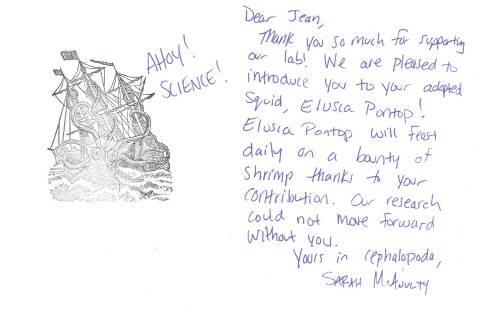 AHOY!
SCIENCE!
Dear Jean,
Thank you so much for supporting
our lab! We are pleased to
introduce you to your adopted
Squid, Elusia Pontop!
Elusia Pontop will feast
daily on a bounty of
shrimp thanks to your
contribution. Our research
could not move forward
without you.
Yours in cephalopoda,
SARAH McANULTY